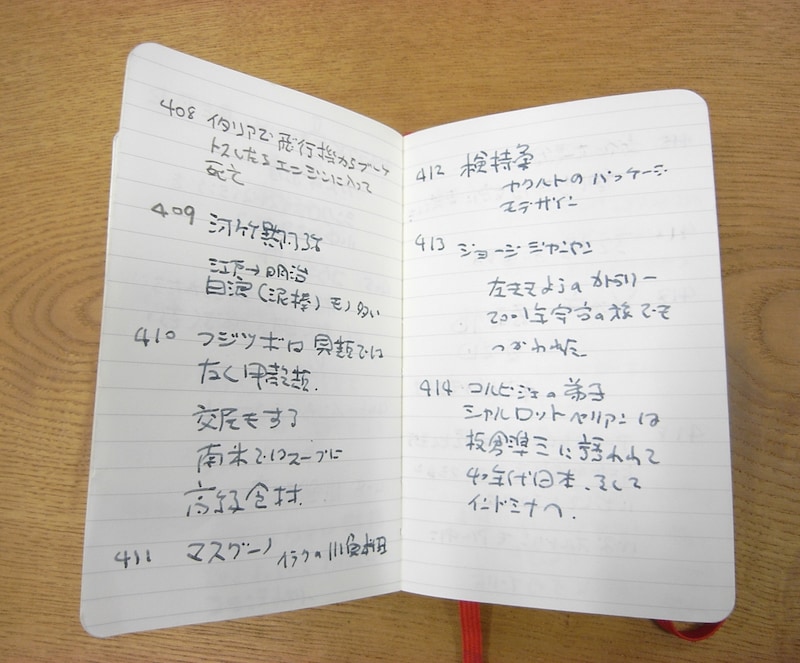 408 イタリアで飛行機からブーケ
トスしたらエンジンに入って
死亡
409 河竹黙阿弥
江戸→明治
白浪(泥棒)モノ多い
410 フジツボは貝類では
なく甲殻類.
交尾もする
南米ではスープに
高級食材.
411 マスグーフ イラクの川魚料理
412 剣持勇
ヤクルトのパッケージ
もデザイン
413 ジョージジャンセン
左ききようのカトラリー
2001年宇宙の旅でも
つかわれた
414 コルビジェの弟子
シャルロットペリアンは
板倉準三に誘われて
40年代日本、そして
インドシナへ.